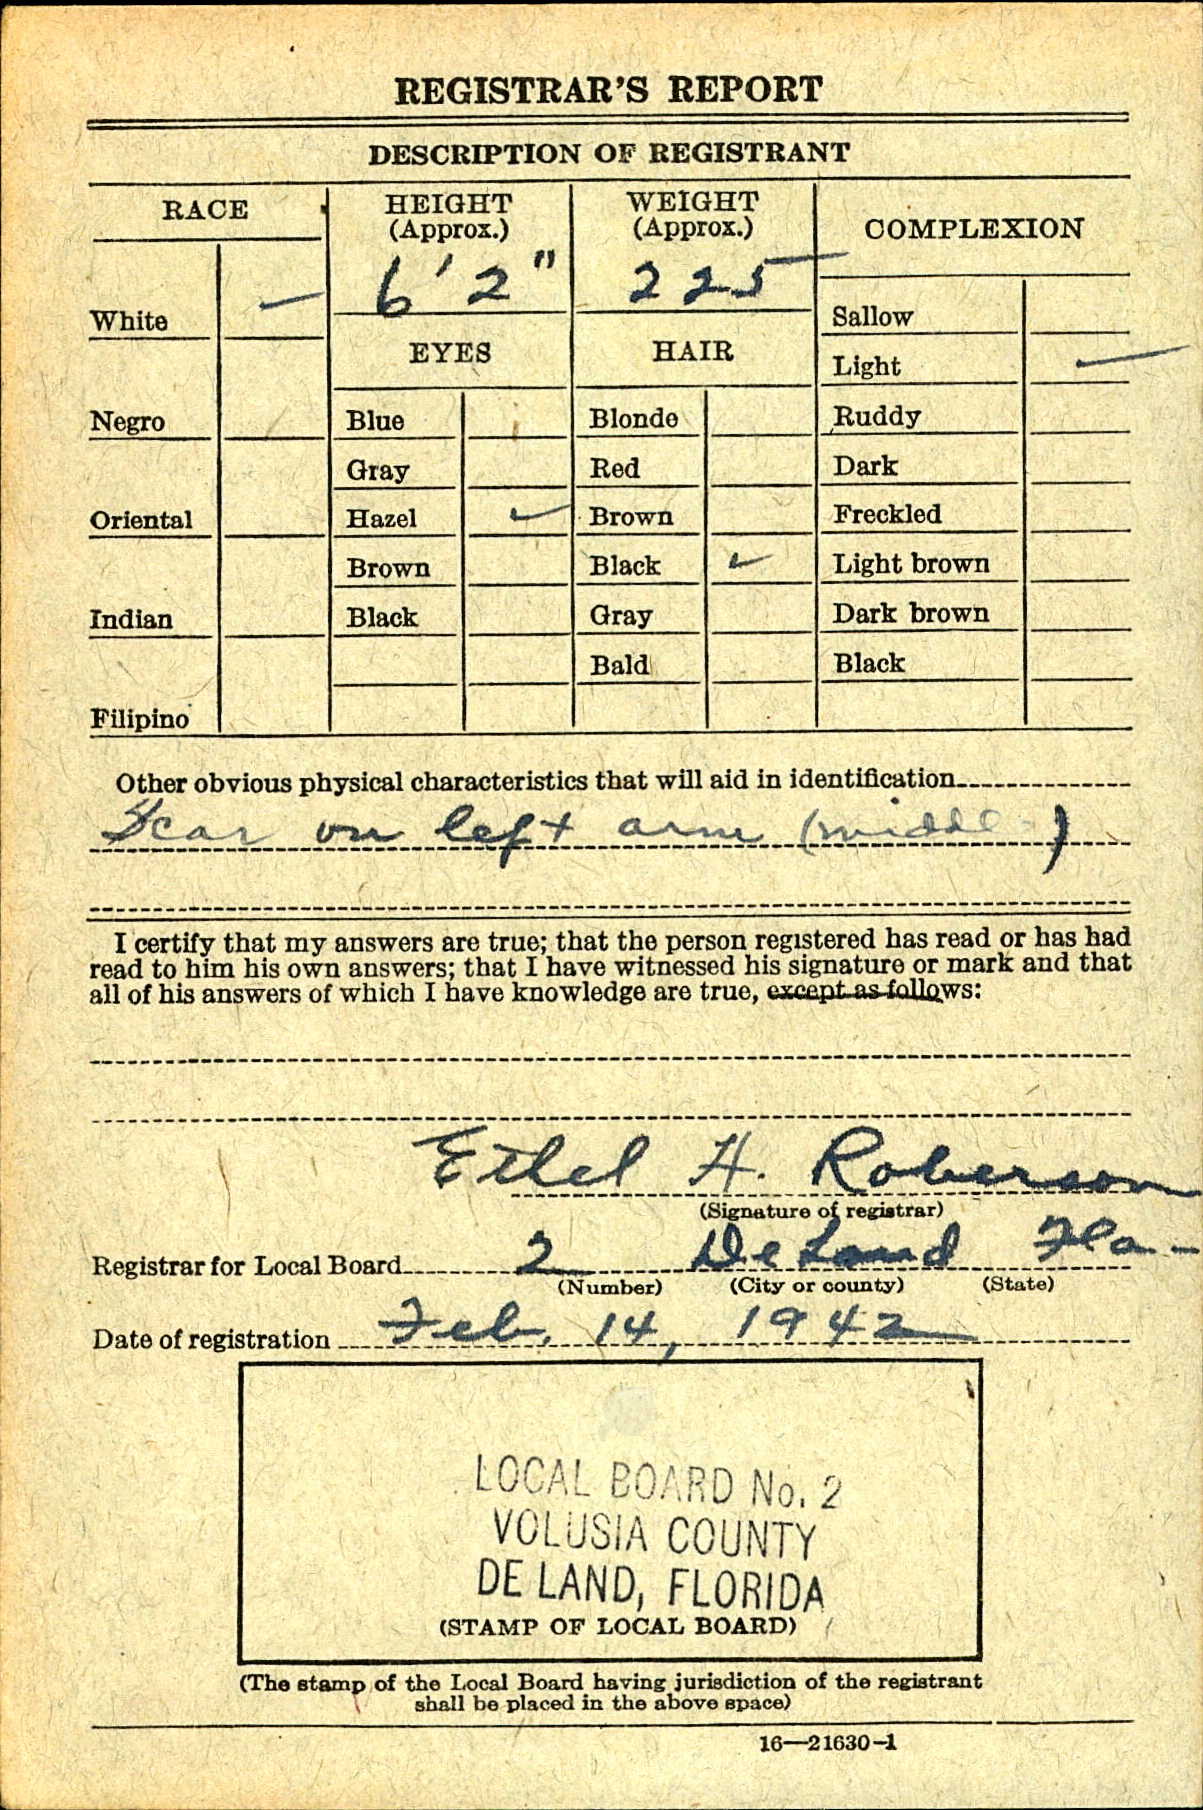 REGISTRAR'S REPORT
DESCRIPTION OF REGISTRANT
RACE
HEIGHT
(Approx.)
WEIGHT
(Approx.)
COMPLEXION
6' 2"
225
White
Sallow
EYES
HAIR
Light
Negro
Blue
Blonde
Ruddy
Gray
Red
Dark
Oriental
Hazel
Brown
Freckled
Brown
Black
Light brown
Indian
Black
Gray
Dark brown
Bald
Black
Filipino
Other obvious physical characteristics that will aid in identification
Scar on left arm (middle)
I certify that my answers are true; that the person registered has read or has had
read to him his own answers; that I have witnessed his signature or mark and that
all of his answers of which I have knowledge are true, except as follows:
Ethel H. Roberson
(Signature of registrar)
Registrar for Local Board 2 DeLand Fla-
(Number) (City or county) (State)
Date of registration Feb. 14, 1942
LOCAL BOARD No. 2
VOLUSIA COUNTY
DE LAND, FLORIDA
(STAMP OF LOCAL BOARD)
(The stamp of the Local Board having jurisdiction of the registrant
shall be placed in the above space)
16—21630-1